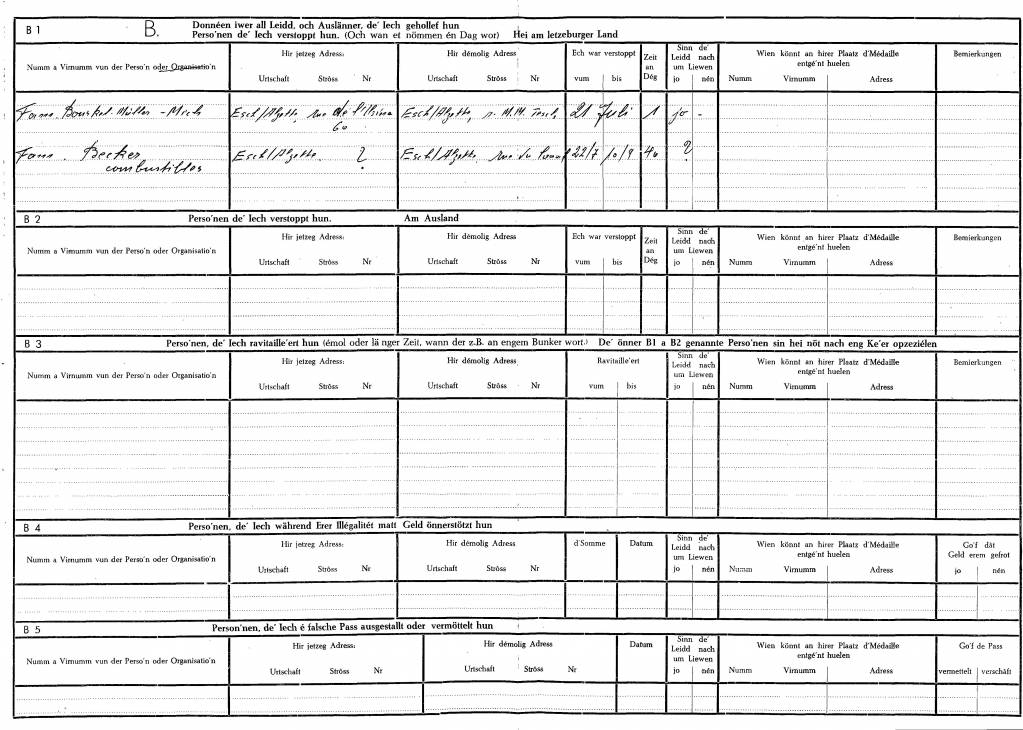 B 1 B. Donnéen iwer all Leidd, och Auslänner, de' Iech gehollef hun
Perso'nen de' Iech verstoppt hun. (Och wan et nömmen én Dag wor) Hei am letzeburger Land
Numm a Virnumm vun der Perso'n oder Organisatio'n
Hir jetzeg Adress:
Urtschaft Ströss Nr
Hir démolig Adress:
Urtschaft Ströss Nr
Ech war verstoppt
vum bis
Zeit
an
Dég
Sinn de'
Leidd nach
um Liewen
jo nén
Wien könnt an hirer Plaatz d'Médaille
entgé'nt huelen
Numm Virnumm Adress
Bemierkungen
Fam. Bourkel-Müller - Mich Esch/Alzette, rue de l'Usina 60 Esch/Alzette, r. M.M. Tesch, 21 Juli 1 jo -
Fam. Becker Esch/Alzette. ? Esch/Alzette. rue du Canal 22/7 10/9 40 ?
combustibles
B 2 Perso'nen de' Iech verstoppt hun. Am Ausland
Numm a Virnumm vun der Perso'n oder Organisatio'n
Hir jetzeg Adress:
Urtschaft Ströss Nr
Hir démolig Adress
Urtschaft Ströss Nr
Ech war verstoppt
vum bis
Zeit
an
Dég
Sinn de'
Leidd nach
um Liewen
jo nén
Wien könnt an hirer Plaatz d'Médaille
entgé'nt huelen
Numm Virnumm Adress
Bemierkungen
B 3 Perso'nen, de' Iech ravitaille'ert hun (émol oder länger Zeit, wann der z.B. an engem Bunker wort.) De' önner B1 a B2 genannte Perso'nen sin hei nöt nach eng Ke'er opzeziélen
Numm a Virnumm vun der Perso'n oder Organisatio'n
Hir jetzeg Adress:
Urtschaft Ströss Nr
Hir démolig Adress
Urtschaft Ströss Nr
Ravitaille'ert
vum bis
Sinn de'
Leidd nach
um Liewen
jo nén
Wien könnt an hirer Plaatz d'Médaille
entgé'nt huelen
Numm Virnumm Adress
Bemierkungen
B 4 Perso'nen, de' Iech während Erer Illégalitét matt Geld önnerstötzt hun
Numm a Virnumm vun der Perso'n oder Organisatio'n
Hir jetzeg Adress:
Urtschaft Ströss Nr
Hir démolig Adress
Urtschaft Ströss Nr
d'Somme
Datum
Sinn de'
Leidd nach
um Liewen
jo nén
Wien könnt an hirer Plaatz d'Médaille
entgé'nt huelen
Numm Virnumm Adress
Go'f dât
Geld erem gefrot
jo nén
B 5 Person'nen, de' Iech é falsche Pass ausgestallt oder vermöttelt hun
Numm a Virnumm vun der Perso'n oder Organisatio'n
Hir jetzeg Adress:
Urtschaft Ströss Nr
Hir démolig Adress:
Urtschaft Ströss Nr
Datum
Sinn de'
Leidd nach
um Liewen
jo nén
Wien könnt an hirer Plaatz d'Médaille
entgé'nt huelen
Numm Virnumm Adress
Go'f de Pass
vermettelt verschäft